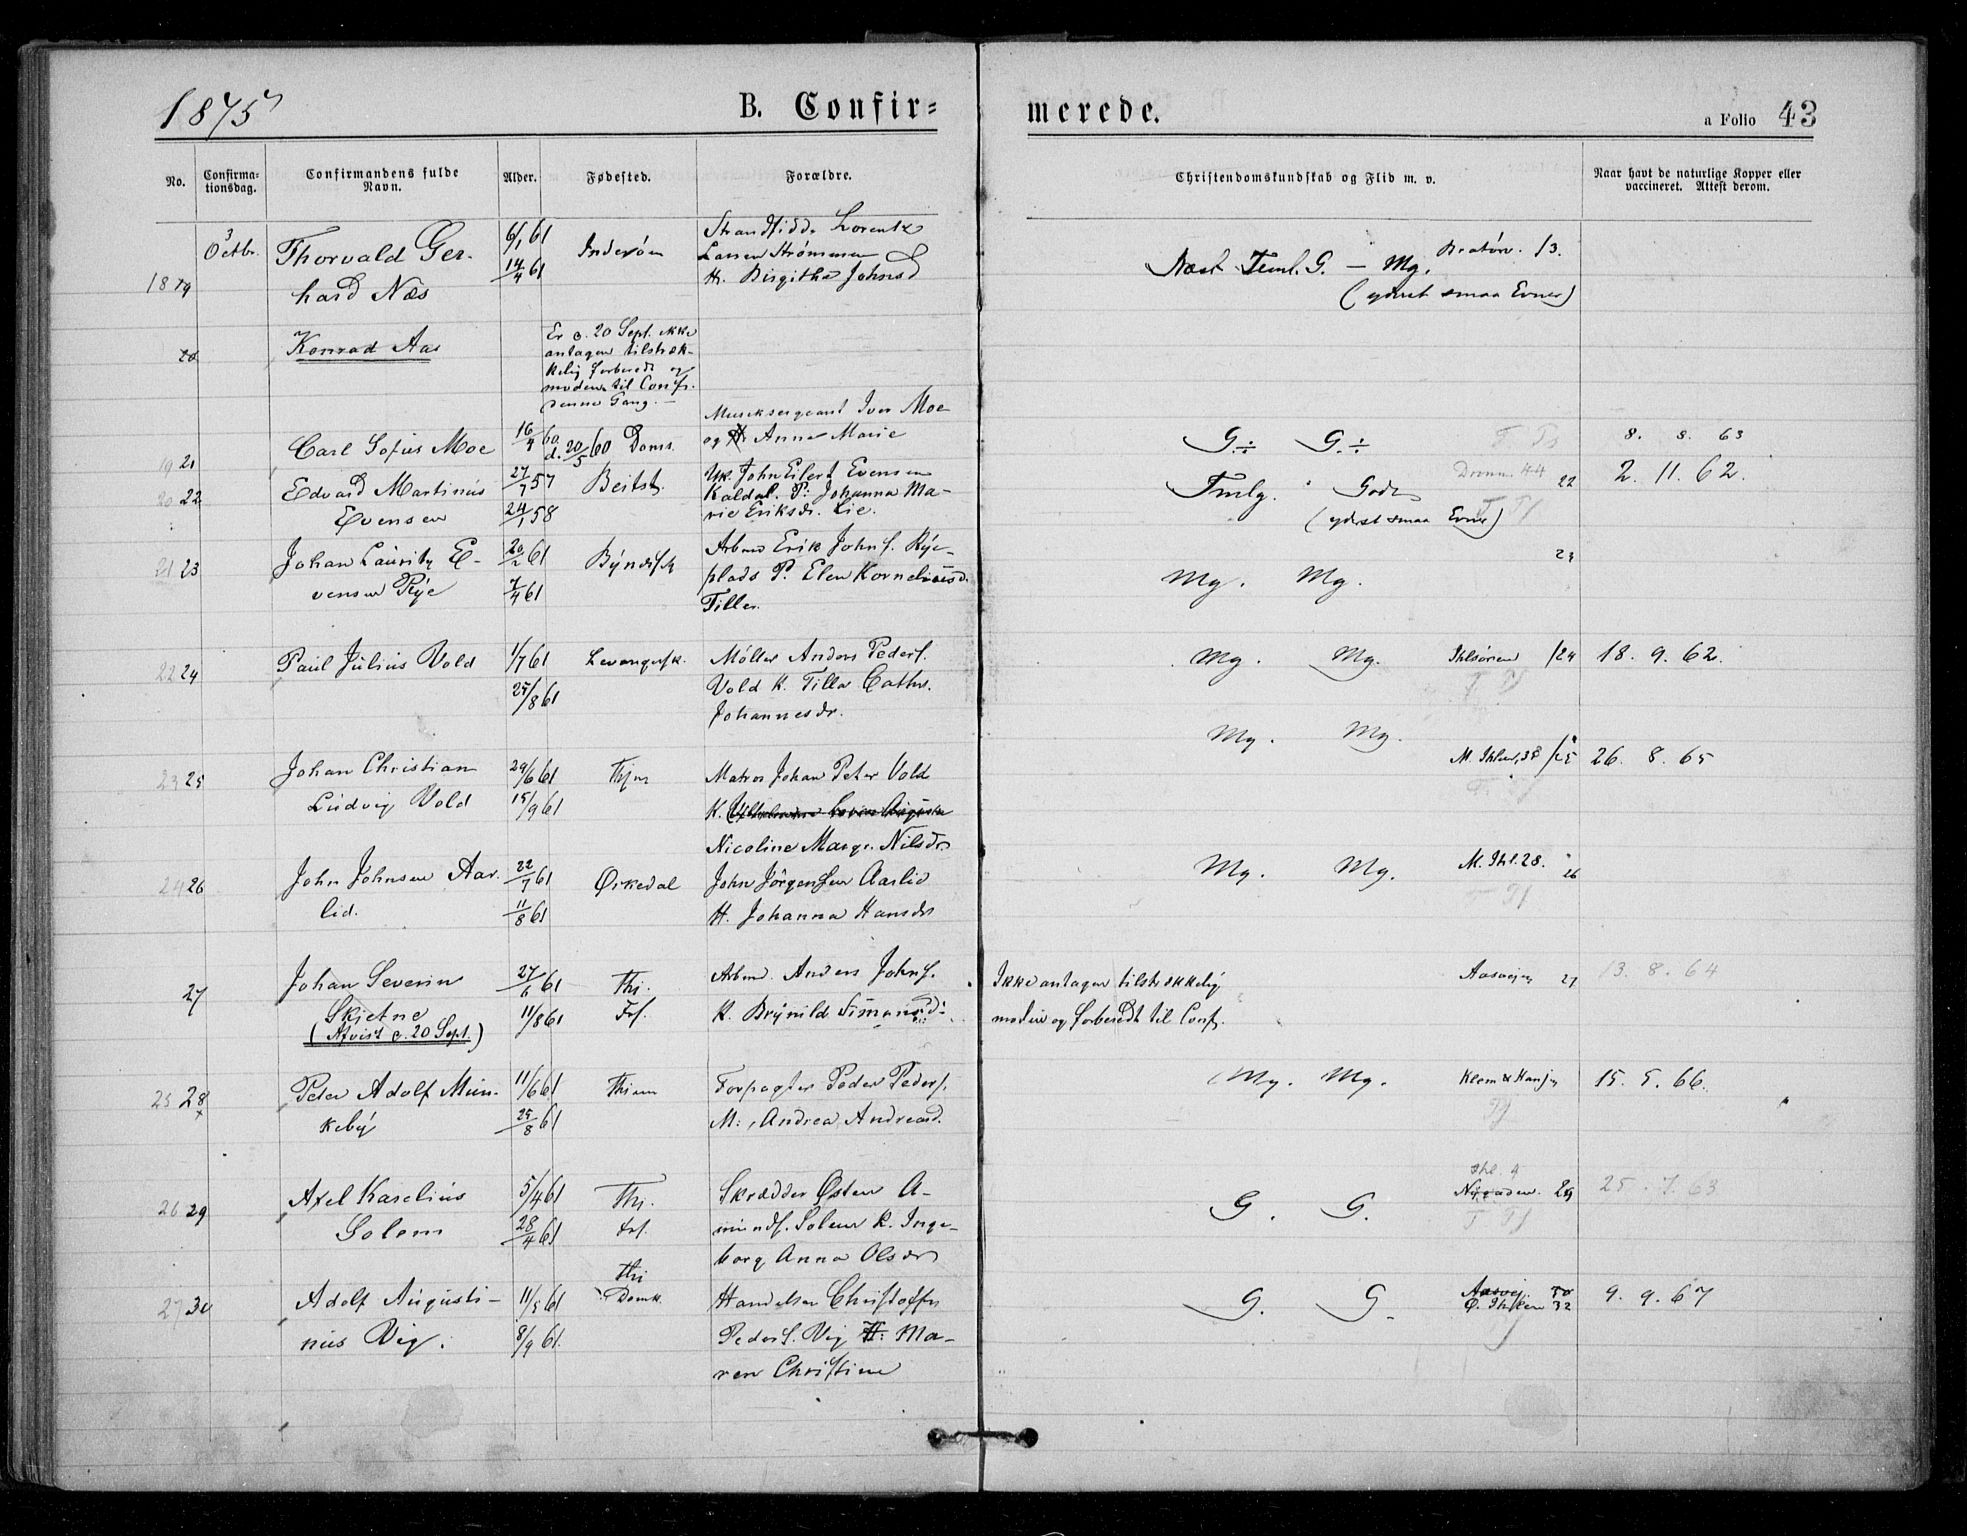 1875
B. Confir=
merede.
a Folio 43
No.
Confirma-
tionsdag.
Confirmandens fulde
Navn.
Alder.
Fødested.
Forældre.
Christendomskundskab og Flid m. v.
Naar havt de naturlige Kopper eller
vaccineret. Attest derom.
3
Octbr.
18 19
Thorvald Ger-
hard Næs
6/1 61
14/4 61
Inderøen
Strandsidd. Lorentz
Larsen Strømmen
H. Birgitha Johnsd
Næst Teml. G. — Mg. Bratørv. 13.
(yderst smaa Evner)
20
Konrad Aas
Er d. 20 Sept. ikke
antagen tilstræk-
kelig forberedt og
moden til Conf.
denne Gang. —
19 21
Carl Sofus Moe
16/4 60
d. 20/5 60 Doms.
Musiksergeant Iver Moe
og H Anna Marie
G. ÷ G. ÷
8. 8. 63
20 22
Edvard Martinus
Evensen
27/7 57
24/1 58
Beitst.
Uk. John Eilert Evensen
Kaldal. P: Johanna Ma-
rie Eriksdr. Lie.
Tmlg. Godt
(yderst smaa Evner)
Dronn. 44 22
2. 11. 62.
21 23
Johan Lauritz E-
vensen Rye
20/2 61
7/4 61
Bynesset
Arbmd Erik Johns. Rye-
plads P. Elen Korneliusd.
Tiller.
Mg. Mg.
23
22 24
Paul Julius Vold
1/7 61
25/8 61
Levangersk.
Møller Anders Peders.
Vold K. Tilla Cathr.
Johannesdr.
Mg. Mg.
Ihlsøren /24
18. 9. 62.
23 25
Johan Christian
Ludvig Vold
29/6 61
15/9 61
Thjm
Matros Johan Peter Vold
K.
Nicoline Margr. Nilsdr.
Mg. Mg.
M. Ihlen, 38 /25
26. 8. 65
24 26
John Johnsen Aar-
lid.
22/7 61
11/8 61
Ørkedal
John Jørgensen Aarlid
H. Johanna Hansdr
Mg. Mg.
M. Ihl. 28. 26
27
Johan Severin
Skjetne
(Afvist d. 20 Sept.)
27/6 61
11/8 61
Thj.
Frf.
Arbmd. Anders Johns.
K. Brynild Simonsd:
Ikke antagen tilstrækkelig
moden og forberedt til Conf.
Aasvejen 27
13. 8. 64
25 28
Peter Adolf Mun-
keby
11/6 61
25/8 61
Thjem
Forpagter Peder Peders.
M:, Andrea Andreasd.
Mg. Mg.
Klem & Hansj
15. 5. 66.
26 29
Axel Karelius
Solem
5/4 61
28/4 61
Thj.
Frf.
Skrædder Østen A-
munds. Solem K. Inge-
borg Anna Olsdr
G. G.
Ihl. 9
29
25. 7. 63
27 30
Adolf Augusti-
nus Vig.
11/5 61
8/9 61.
Thj
Domk.
Handelsm Christoffer
Peders. Vig H: Ma-
ren Christine
G. G.
Aasvej.
Ø. Ihlen 32
9. 9. 67